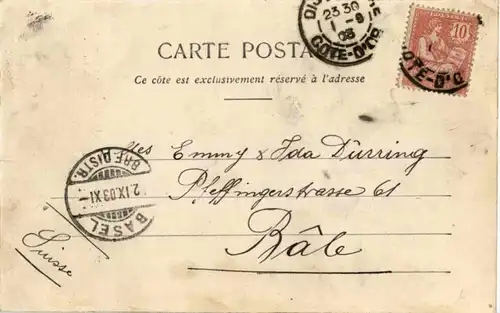 DIJ
23 30
1 - 9
03
COTE-D'OR
10
OTE-D'O
CARTE POSTA
Ce côte est exclusivement réservé à l'adresse
lles Emmy & Ida Dürring
Pfeffingerstrasse 61
Bâle
Suisse
BRF. DISTR.
2.IX.03.XI-
BASEL